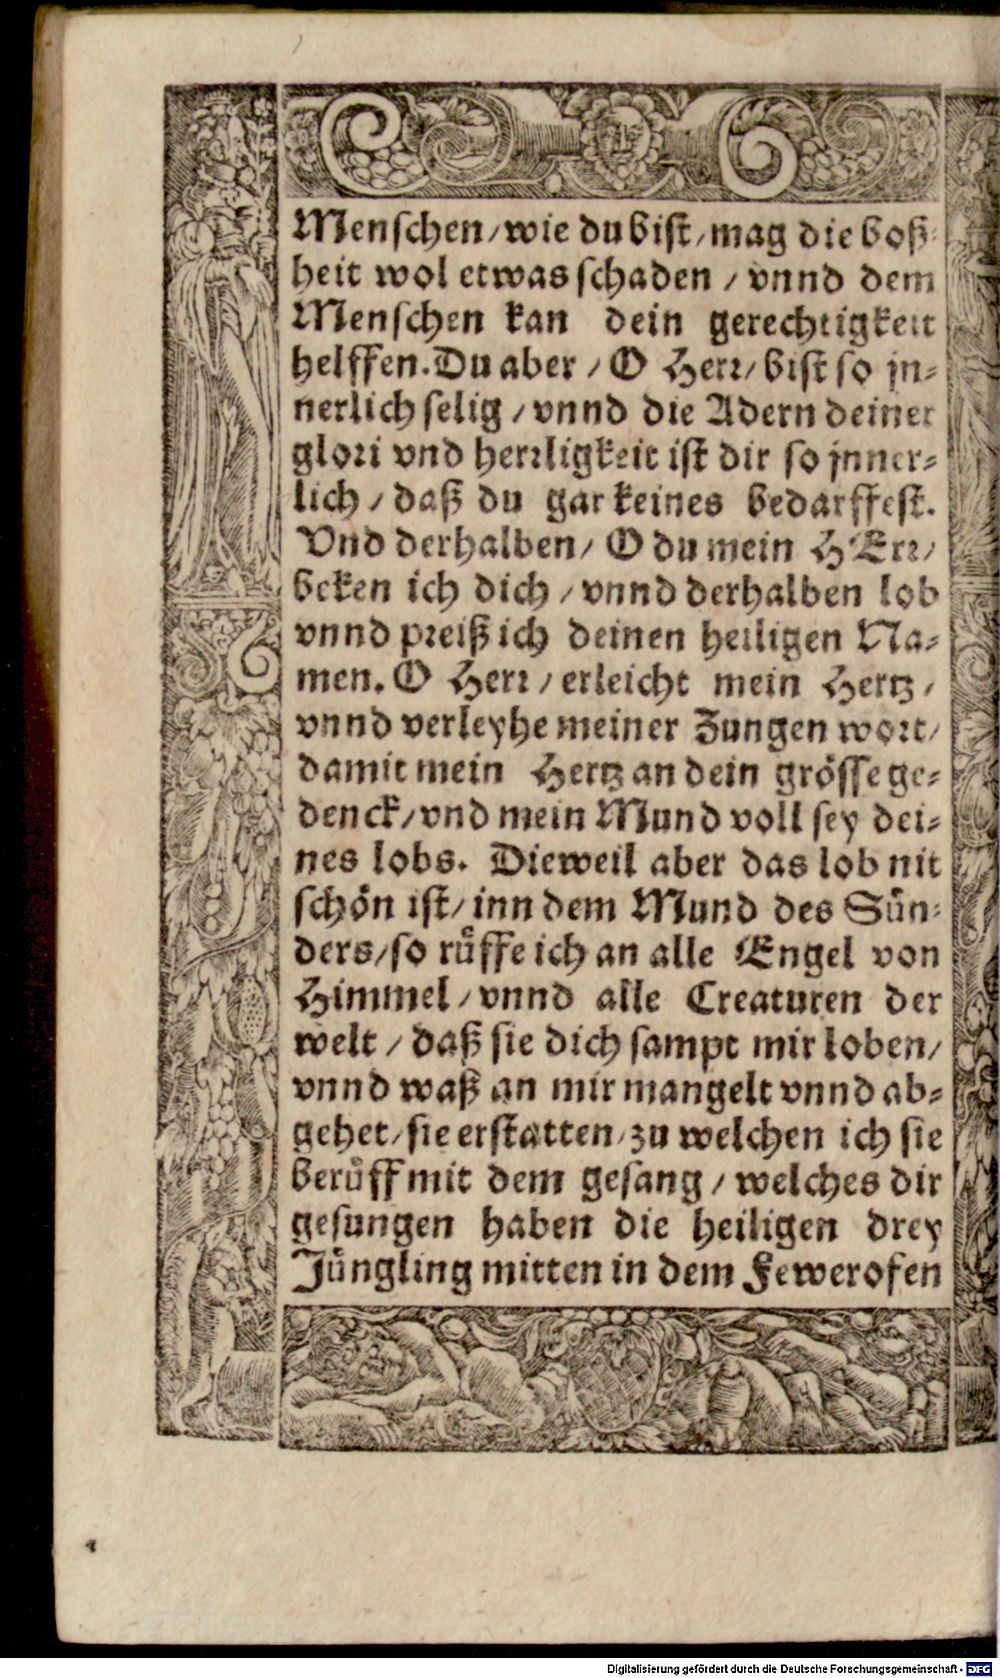 Menschen/wie du bist/mag die boß-
heit wol etwas schaden / vnnd dem
Menschen kan dein gerechtigkeit
helffen. Du aber / O Herr/ bist so jn-
nerlich selig / vnnd die Adern deiner
glori vnd herrligkeit ist dir so jnner-
lich / daß du gar keines bedarffest.
Vnd derhalben/ O du mein HErr/
beken ich dich / vnnd derhalben lob
vnnd preiß ich deinen heiligen Na-
men. O Herr / erleicht mein Hertz /
vnnd verleyhe meiner Zungen wort/
damit mein Hertz an dein grösse ge-
denck/vnd mein Mund voll sey dei-
nes lobs. Dieweil aber das lob nit
schön ist/ inn dem Mund des Sün-
ders/so růffe ich an alle Engel von
Himmel / vnnd alle Creaturen der
welt / daß sie dich sampt mir loben/
vnnd waß an mir mangelt vnnd ab-
gehet/sie erstatten/zu welchen ich sie
berůff mit dem gesang / welches dir
gesungen haben die heiligen drey
Jüngling mitten in dem Fewerofen
Digitalisierung gefördert durch die Deutsche Forschungsgemeinschaft - DFG